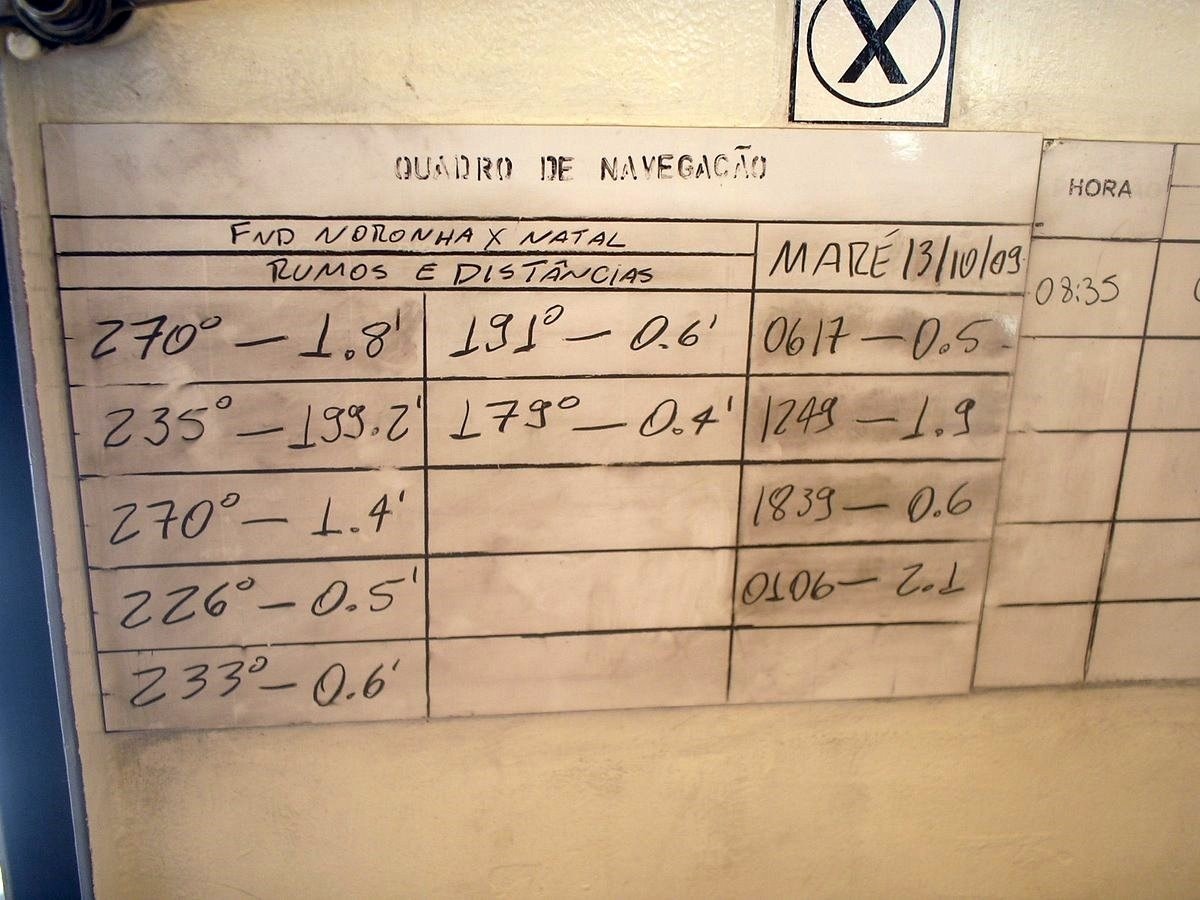 X
QUADRO DE NAVEGAÇÃO
FND NORONHA X NATAL
RUMOS E DISTÂNCIAS
MARÉ 13/10/09
HORA
08:35
270° — 1.8' 191° — 0.6' 0617 — 0.5
235° — 199.2' 179° — 0.4' 1249 — 1.9
270° — 1.4' 1839 — 0.6
226° — 0.5' 0106 — 2.1
233° — 0.6'